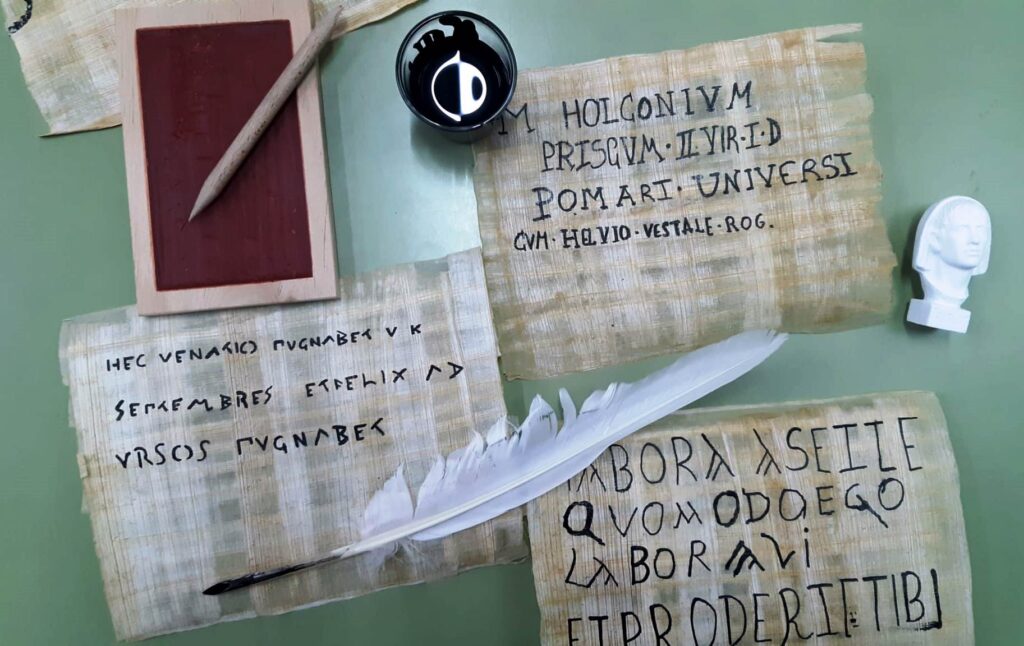 M HOLCONIVM
PRISCVM·II VIR·I·D
POMARI·UNIVERSI
CVM·HELVIO·VESTALE·ROG.
HEC VENATIO PVGNABET V K
SEPTEMBRES ET FELIX AD
VRSOS PVGNABET
LABORA ASELLE
QVOMODO EGO
LABORAVI
ET PRODERIT TIBI